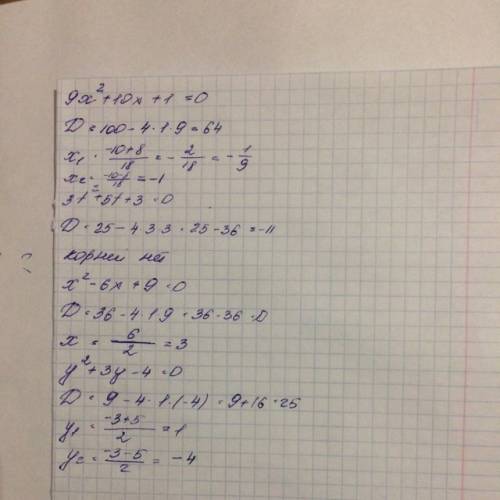 9x²+10x+1=0
D=100-4·1·9=64
x₁=(-10+8)/18=-2/18=-1/9
x₂=-10-8/18=-1
3t²+5t+3=0
D=25-4·3·3=25-36=-11
корней нет
x²-6x+9=0
D=36-4·1·9=36-36=0
x=6/2=3
y²+3y-4=0
D=9-4·1·(-4)=9+16=25
y₁=(-3+5)/2=1
y₂=(-3-5)/2=-4